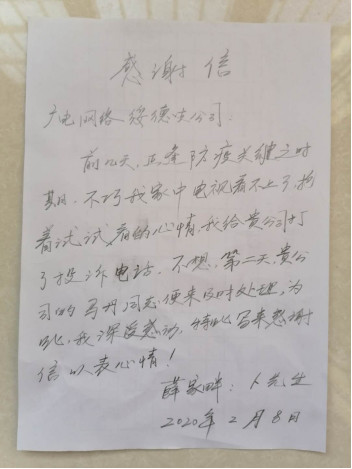 感谢信
广电网络绥德支公司:
前几天,正逢防疫关键之时
期,不巧我家中电视看不上了,抱
着试试看的心情,我给贵公司打
了投诉电话,不想,第二天,贵公
司的马升同志便来及时处理,为
此,我深受感动,特此写来感谢
信以表心情!
薛家畔:卜先生
2020年2月8日